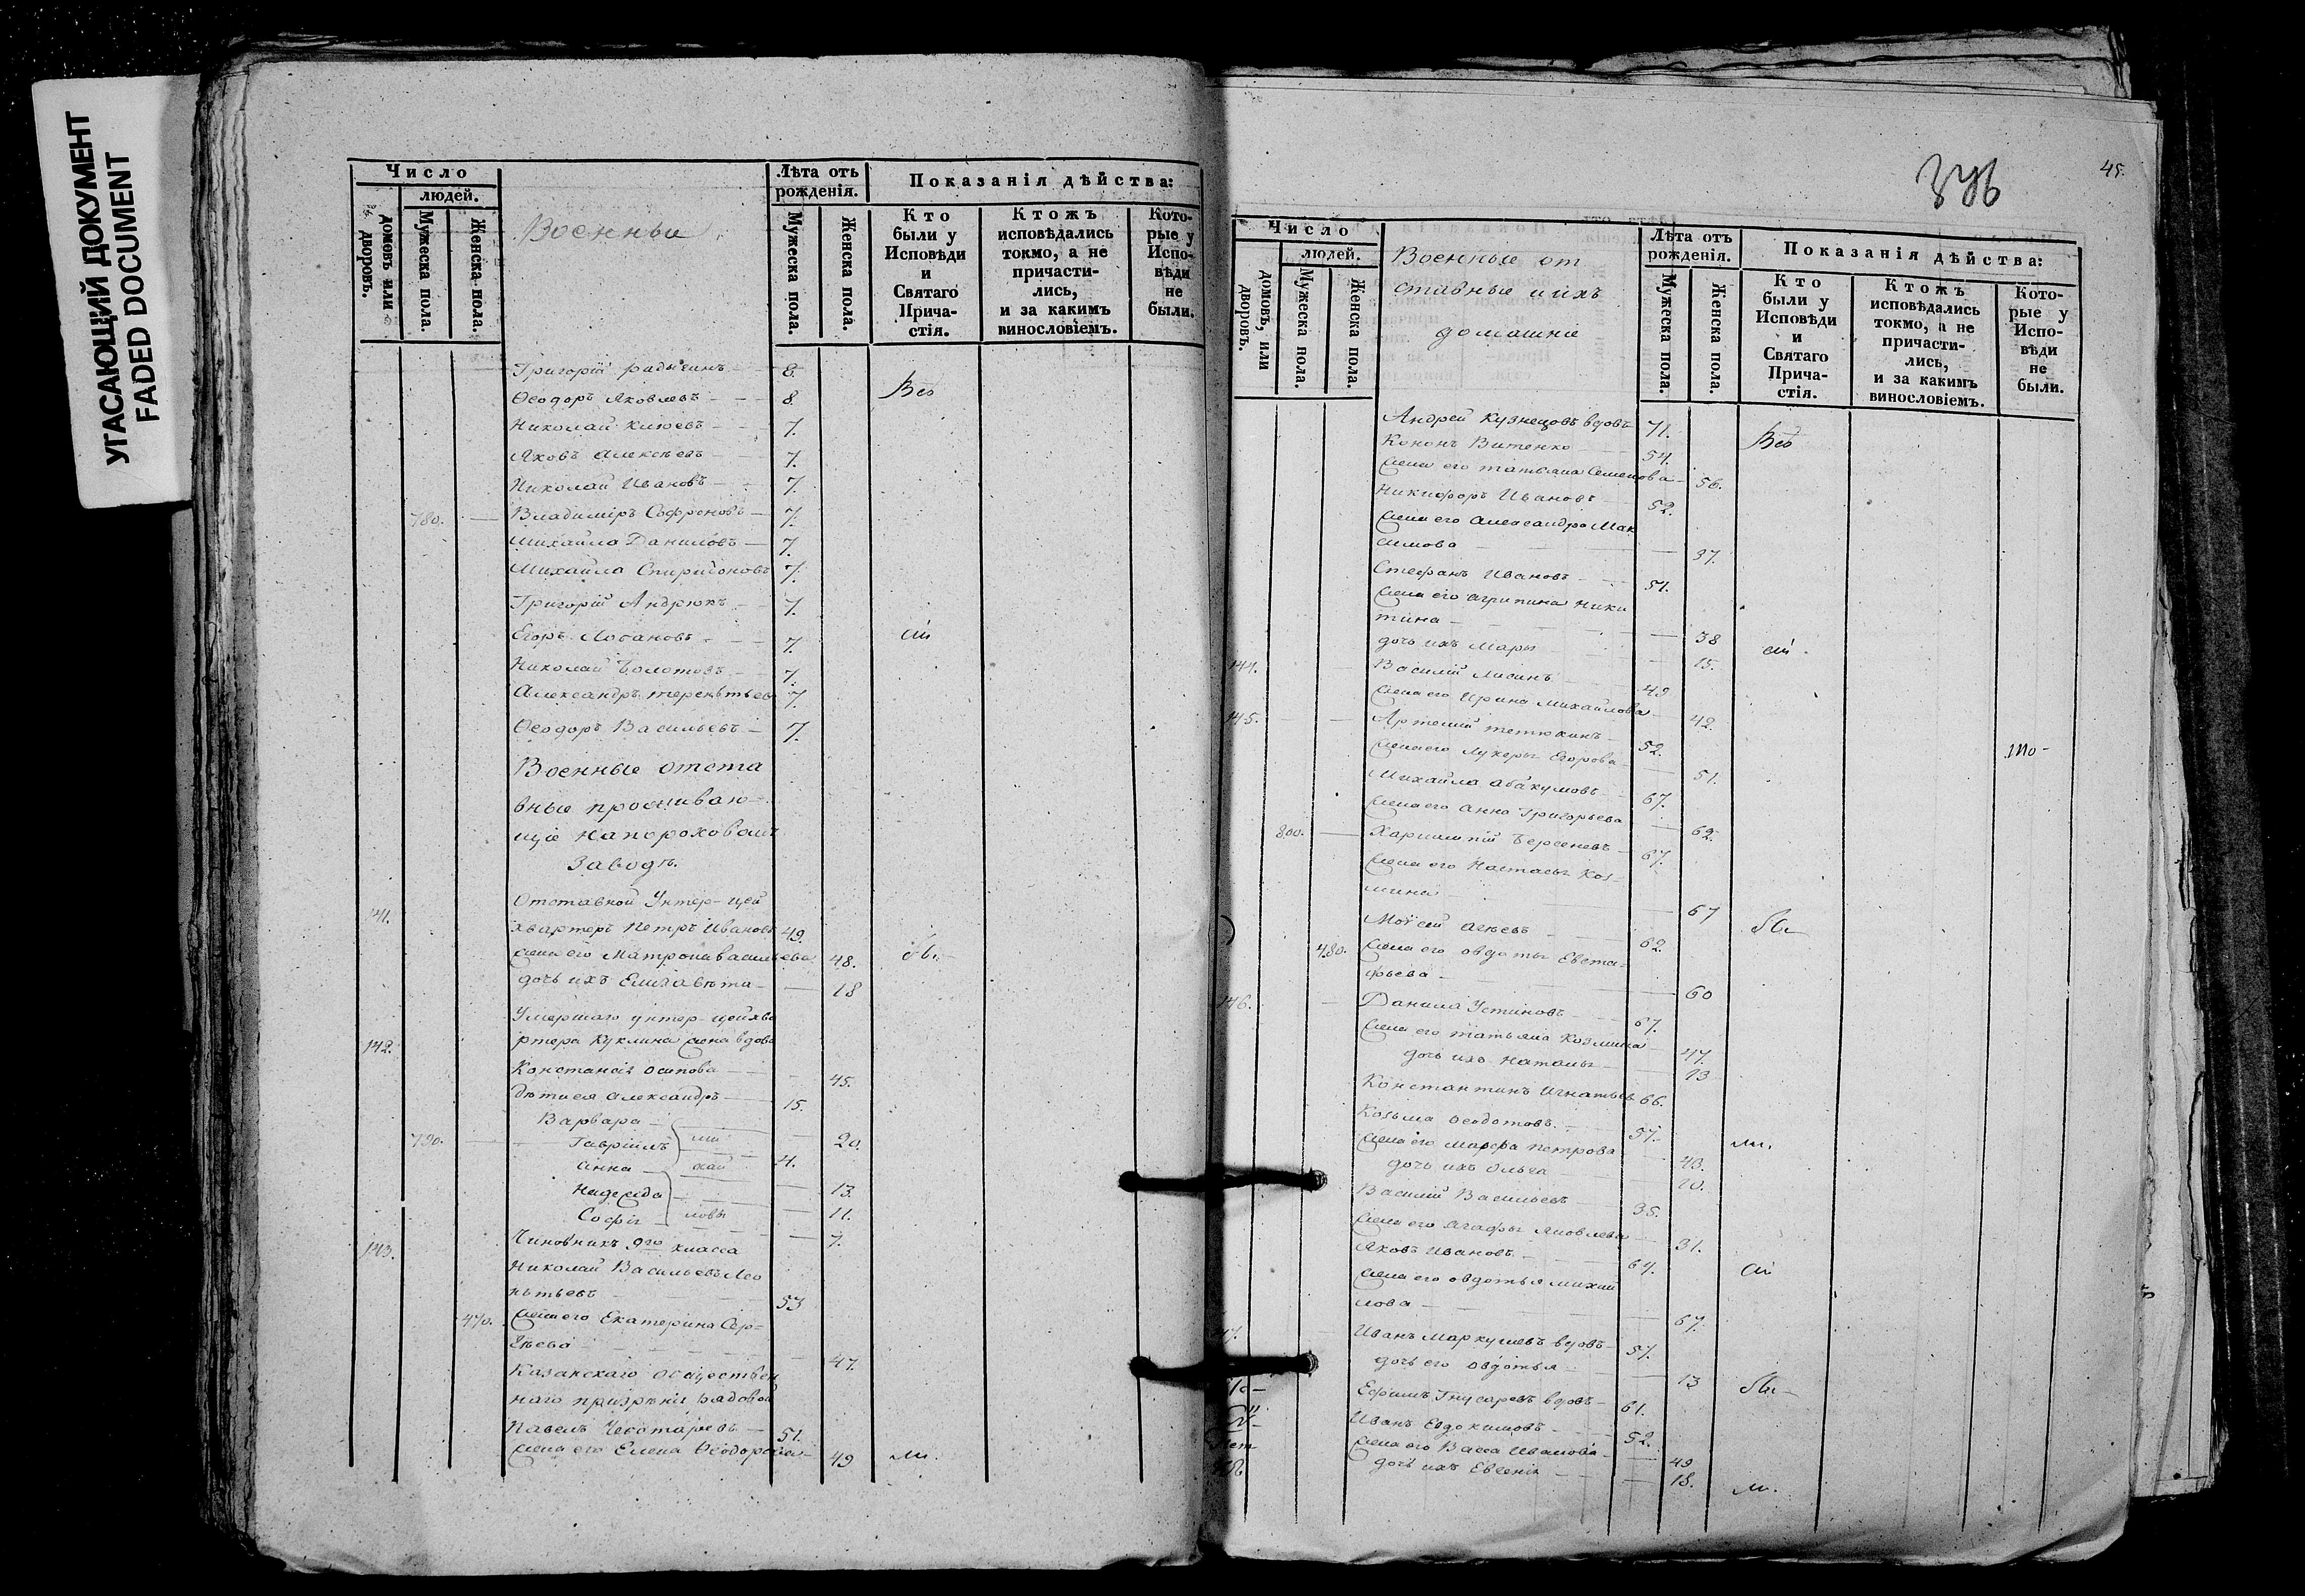 УГАСАЮЩИЙ ДОКУМЕНТ
FADED DOCUMENT
Число
людей.
домовъ или дворовъ.
Мужеска пола.
Женска пола.
Военныи
Лѣта отъ рожденія.
Мужеска пола.
Женска пола.
Показанія дѣйства:
Кто были у Исповѣди и Святаго Прича-стія.
Ктожъ исповѣдались токмо, а не причасти-лись, и за какимъ винословіемъ.
Кото-рые у Испо-вѣди не были.
Григорій 8.
Ѳеодоръ Яковлевъ 8. Всѣ
Николай Клюевъ 7.
Яковъ Алексѣевъ 7.
Николай Ивановъ 7.
780. Владиміръ Софроновъ 7.
Михайла Даниловъ 7.
Михайла Спиридоновъ 7.
Григорій Андрюкъ 7.
Егоръ Лобановъ 7.
Николай Болотовъ 7.
Александръ Терентьевъ 7.
Ѳеодоръ Васильевъ 7.
Военные отста
вные проживаю-
щіе на пороховомъ
Заводѣ.
141. Отставной Унтер-цей
хвартеръ Петръ Ивановъ 49.
жена его Матрона Васильева 48. бы
дочь ихъ Елизавета 18
Умершаго унтер-цейхва
142. ртера Куклина жена вдова
Констансія Осипова 45.
дѣти ея Александръ 15.
Варвара 20.
790. Гавріилъ 4.
Анна 13.
Надежда 11.
Софія 7.
143. Чиновникъ 9го класса
Николай Васильевъ Лео
нтьевъ 53
470. жена его Екатерина Сер-
гѣева 47.
Казанскаго общестwен
наго призрѣнія рядовой
Павелъ Чеботаревъ 51.
жена его Елена Ѳеодорова 49 ли.
376
45.
Число
людей.
домовъ, или дворовъ.
Мужеска пола.
Женска пола.
Военные от
ставные и ихъ
домашніе
Лѣта отъ рожденія.
Мужеска пола.
Женска пола.
Показанія дѣйства:
Кто были у Исповѣди и Святаго Прича-стія.
Ктожъ исповѣдались токмо, а не причасти-лись, и за какимъ винословіемъ.
Кото-рые у Испо-вѣди не были.
Андрей Кузнецовъ вдовъ 71. Всѣ
Кононъ Витенко 54.
жена его Татьяна Семенова 56.
Никифоръ Ивановъ 52.
жена его Александра Мак
симова 37.
Стефанъ Ивановъ 51.
жена его Агрипина Ники
тина 38
дочь ихъ Марья 15.
144. Василій Лисинъ 49
жена его Ирина Михайлова 42.
145. Артемій Тетюкинъ 52.
жена его Лукерья Егорова 51.
Михайла Абакумовъ 67.
жена его Анна Григорьева 62.
800. Харлампій Берсеневъ 67.
жена его Настасья Коз-
мина 67
Моисей Агѣевъ 62.
480. жена его Овдотья Евста-
фьева 60
146. Данила Устиновъ 67.
жена его Татьяна Козмина 47.
дочь ихъ Наталья 13
Константинъ Игнатьевъ 66.
Козьма Ѳеодотовъ 57.
жена его Марфа Петрова 43.
дочь ихъ Ольга 10.
Василій Васильевъ 35.
жена его Агафья Яковлева 31.
Яковъ Ивановъ 64.
жена его Овдотья Михай
лова 67.
Иванъ Маркушевъ вдовъ 57.
дочь его Овдотья 13
Ефимъ Гнусаревъ вдовъ 61.
Иванъ Евдокимовъ 52.
жена его Васса Иванова 49
дочь ихъ Евгенія 18. ли.